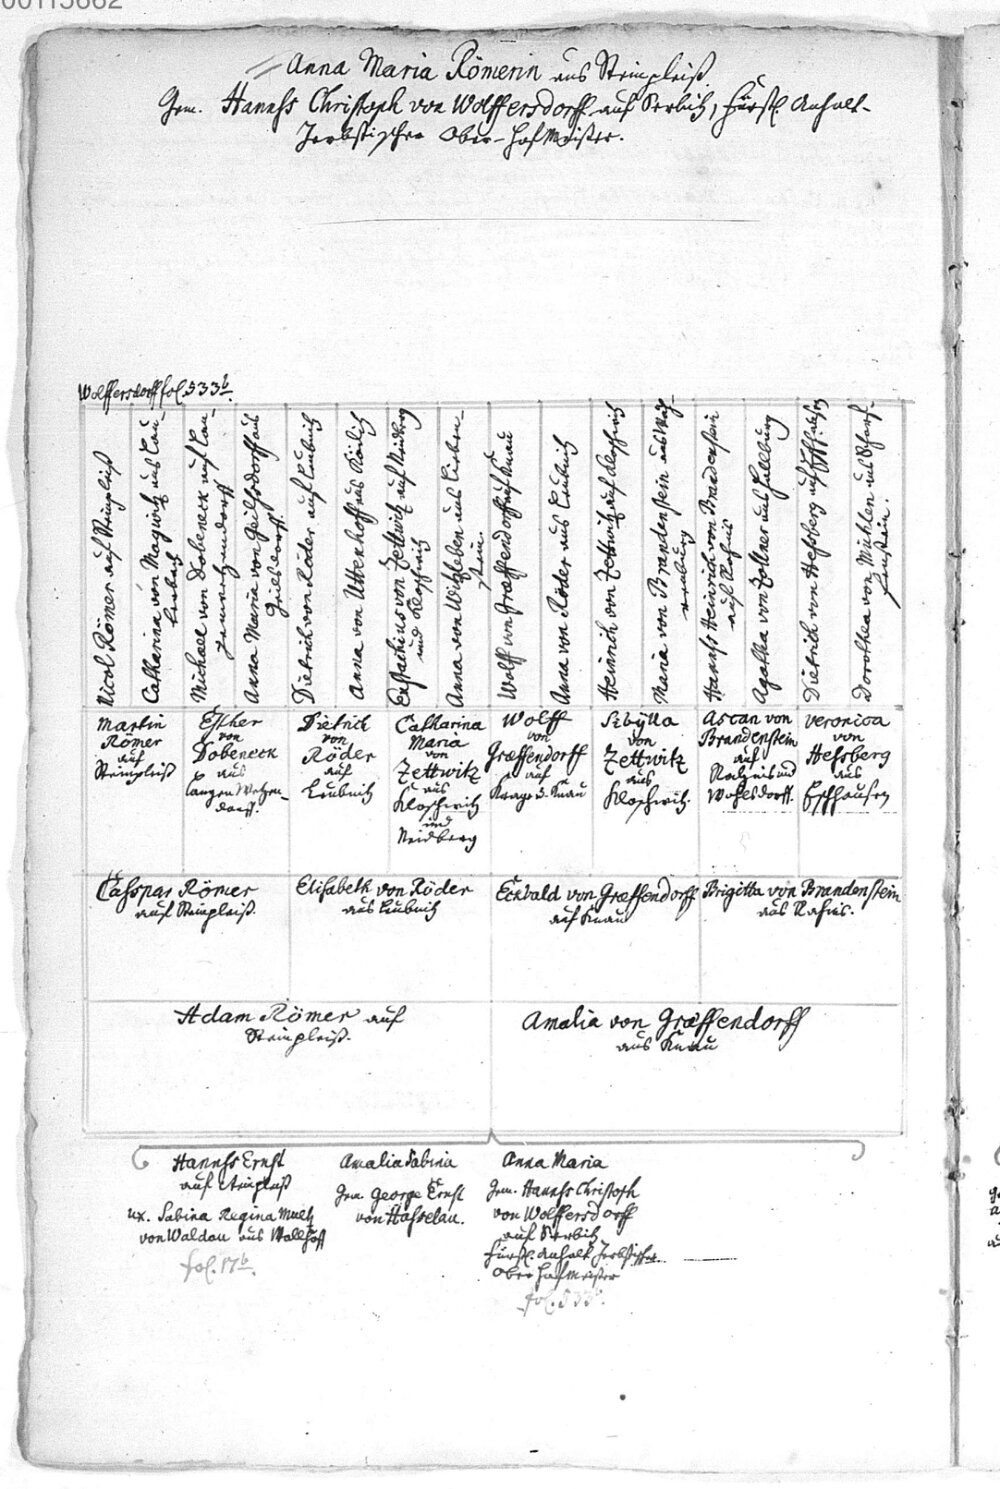 00115662
Anna Maria Römerin aus Steinpleiß
Gem. Hannß Christoph von Wolffersdorff auf Serbitz, Fürstl. Anhalt-
Zerbstischer Ober-Hof Meister.
Wolffersdorff fol. 533b.
Nicol Römer auf Steinpleiß
Catharina von Magwitz aus Lau-
terbach
Michael von Dobeneck auf Lan-
genwetzendorff
Anna Maria von Geilsdorff aus
Geilsdorff.
Dietrich von Röder auf Leubnitz
Anna von Uttenhoff aus
Eustachius von Zettwitz auf Neidberg
und Kloschwitz
Anna von Witzleben aus Lieben-
stein.
Wolff von Græffendorff auf Knau
Anna von Röder aus Leubnitz
Heinrich von Zettwitz auf Kloschwitz
Maria von Brandenstein aus
Hannß Heinrich von Brandenstein
auf Rahnis
Agatha von Zollner aus Hallburg
Dietrich von Heßberg auf Eßhausen
Dorothea von Michlen aus Scharf-
fenstein.
Martin
Römer
auf
Steinpleiß
Esther
von
Dobeneck
aus
Langen Wetzen-
dorff.
Dietrich
von
Röder
auf
Leubnitz
Catharina
Maria
von
Zettwitz
aus
Kloschwitz
und
Neidberg
Wolff
von
Græffendorff
auf
Knau
Sibylla
von
Zettwitz
aus
Kloschwitz.
Ascan von
Brandenstein
auf
Rahnis und
Wohlsdorff.
Veronica
von
Heßberg
aus
Eßhausen
Caßpar Römer
auf Steinpleiß.
Elisabeth von Röder
aus Leubnitz
Eckbald von Græffendorff
auf Knau
Brigitta von Brandenstein
aus Rahnis.
Adam Römer auf
Steinpleiß.
Amalia von Græffendorff
aus Knau
Hannß Ernst
auf Steinpleiß
ux. Sabina Regina
von Waldau aus
fol. 17b.
Amalia Sabina
Gem. George Ernst
von Haßelau.
Anna Maria
Gem. Hannß Christoph
von Wolffersdorff
auf Serbitz
Fürstl. Anhalt Zerbstischer
Ober Hofmeister
fol. 533b.